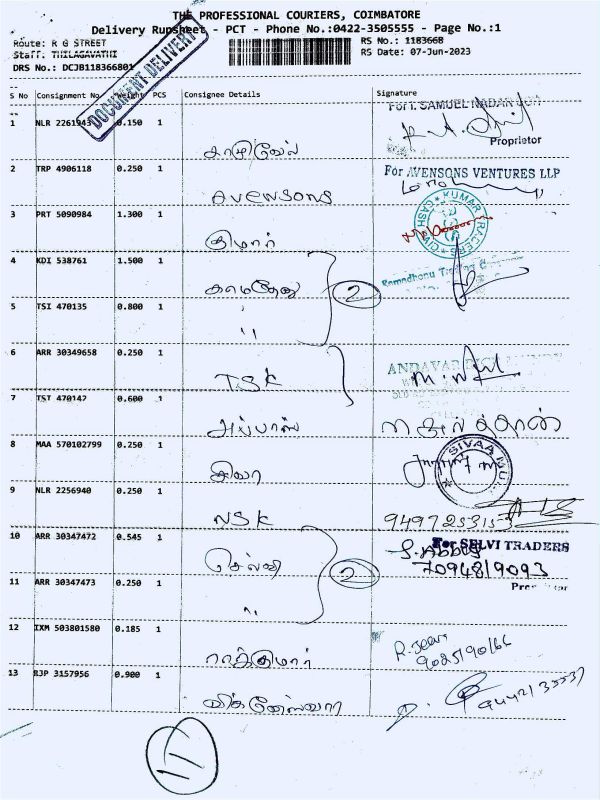 THE PROFESSIONAL COURIERS, COIMBATORE
Delivery Runsheet - PCT - Phone No.:0422-3505555 - Page No.:1
Route: R G STREET
RS No.: 118366B
Staff: THILAGAVATHI
RS Date: 07-Jun-2023
DRS No.: DCJB118366801
DOCUMENT DELIVERY
S No Consignment No Weight PCS Consignee Details Signature
For I. SAMUEL NADAR
1 NLR 2261943 0.150 1
Proprietor
2 TRP 4906118 0.250 1
For AVENSONS VENTURES LLP
AVENSONS
3 PRT 5090984 1.300 1
KUMAR TRADERS
குமார்
4 KDI 538761 1.500 1
காமதேனு
2
Ramadhanu Trading
5 TSI 470135 0.800 1
"
6 ARR 30349658 0.250 1
ANDAVAR
TSK
7 TST 470142 0.600 1
அப்பாஸ்
8 MAA 570102799 0.250 1
SIVAA
சிவா
9 NLR 2256940 0.250 1
NSK
9497253153
10 ARR 30347472 0.545 1
For SELVI TRADERS
செல்வி
S. Abbas
7094819093
2
11 ARR 30347473 0.250 1
"
12 IXM 503801580 0.185 1
ராஜ்குமார்
R. Jeeva
9025190166
13 RJP 3157956 0.900 1
விக்னேஸ்வரா
11